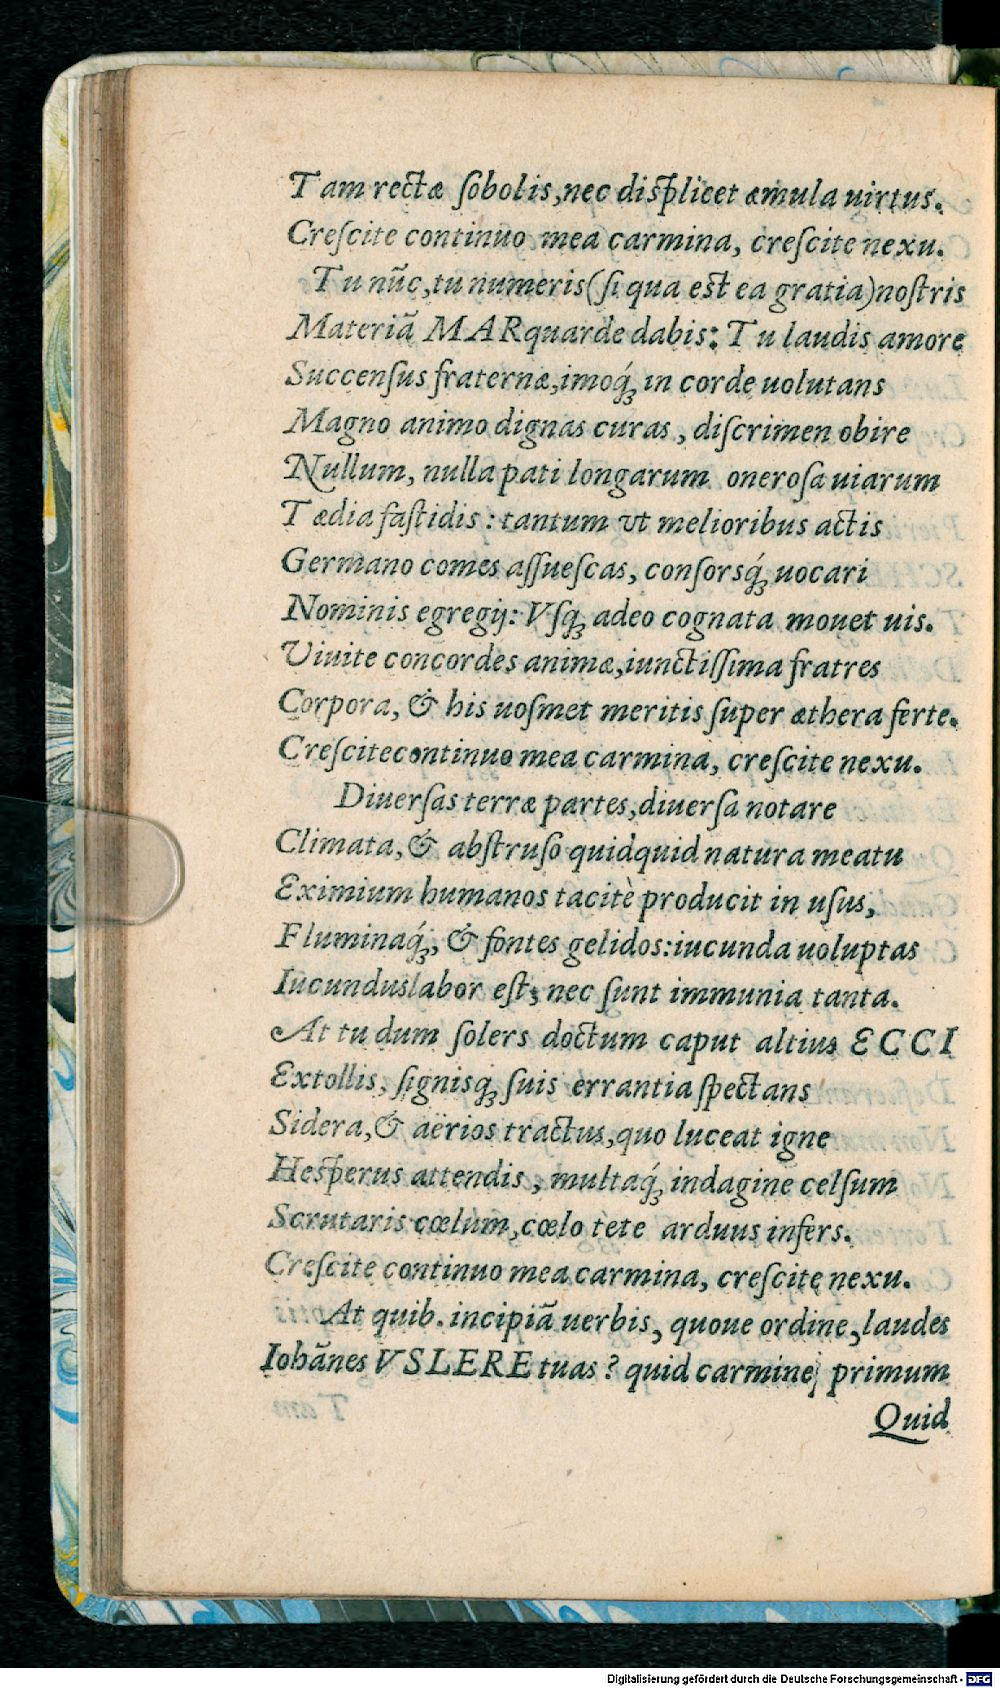 Tam rectæ ſobolis, nec diſplicet æmula uirtus.
Creſcite continuo mea carmina, creſcite nexu.
Tu nūc, tu numeris (ſi qua eſt ea gratia) noſtris
Materiā MARquarde dabis: Tu laudis amore
Succenſus fraternæ, imoq́; in corde uolutans
Magno animo dignas curas, diſcrimen obire
Nullum, nulla pati longarum oneroſa uiarum
Tædia faſtidis: tantum vt melioribus actis
Germano comes aſſueſcas, conſorsq́; uocari
Nominis egregij: Vſq; adeo cognata mouet uis.
Viuite concordes animæ, iunctiſſima fratres
Corpora, & his uoſmet meritis ſuper æthera ferte.
Creſcite continuo mea carmina, creſcite nexu.
Diuerſas terræ partes, diuerſa notare
Climata, & abſtruſo quidquid natura meatu
Eximium humanos tacitè producit in uſus,
Fluminaq́;, & fontes gelidos: iucunda uoluptas
Iucundus labor eſt, nec ſunt immunia tanta.
At tu dum ſolers doctum caput altius ECCI
Extollis, ſignisq́; ſuis errantia ſpectans
Sidera, & aërios tractus, quo luceat igne
Heſperus attendis, multaq́; indagine celſum
Scrutaris cœlum, cœlo tete arduus infers.
Creſcite continuo mea carmina, creſcite nexu.
At quib. incipiā uerbis, quoue ordine, laudes
Iohānes VSLERE tuas? quid carmine primum
Quid
Digitalisierung gefördert durch die Deutsche Forschungsgemeinschaft - DFG